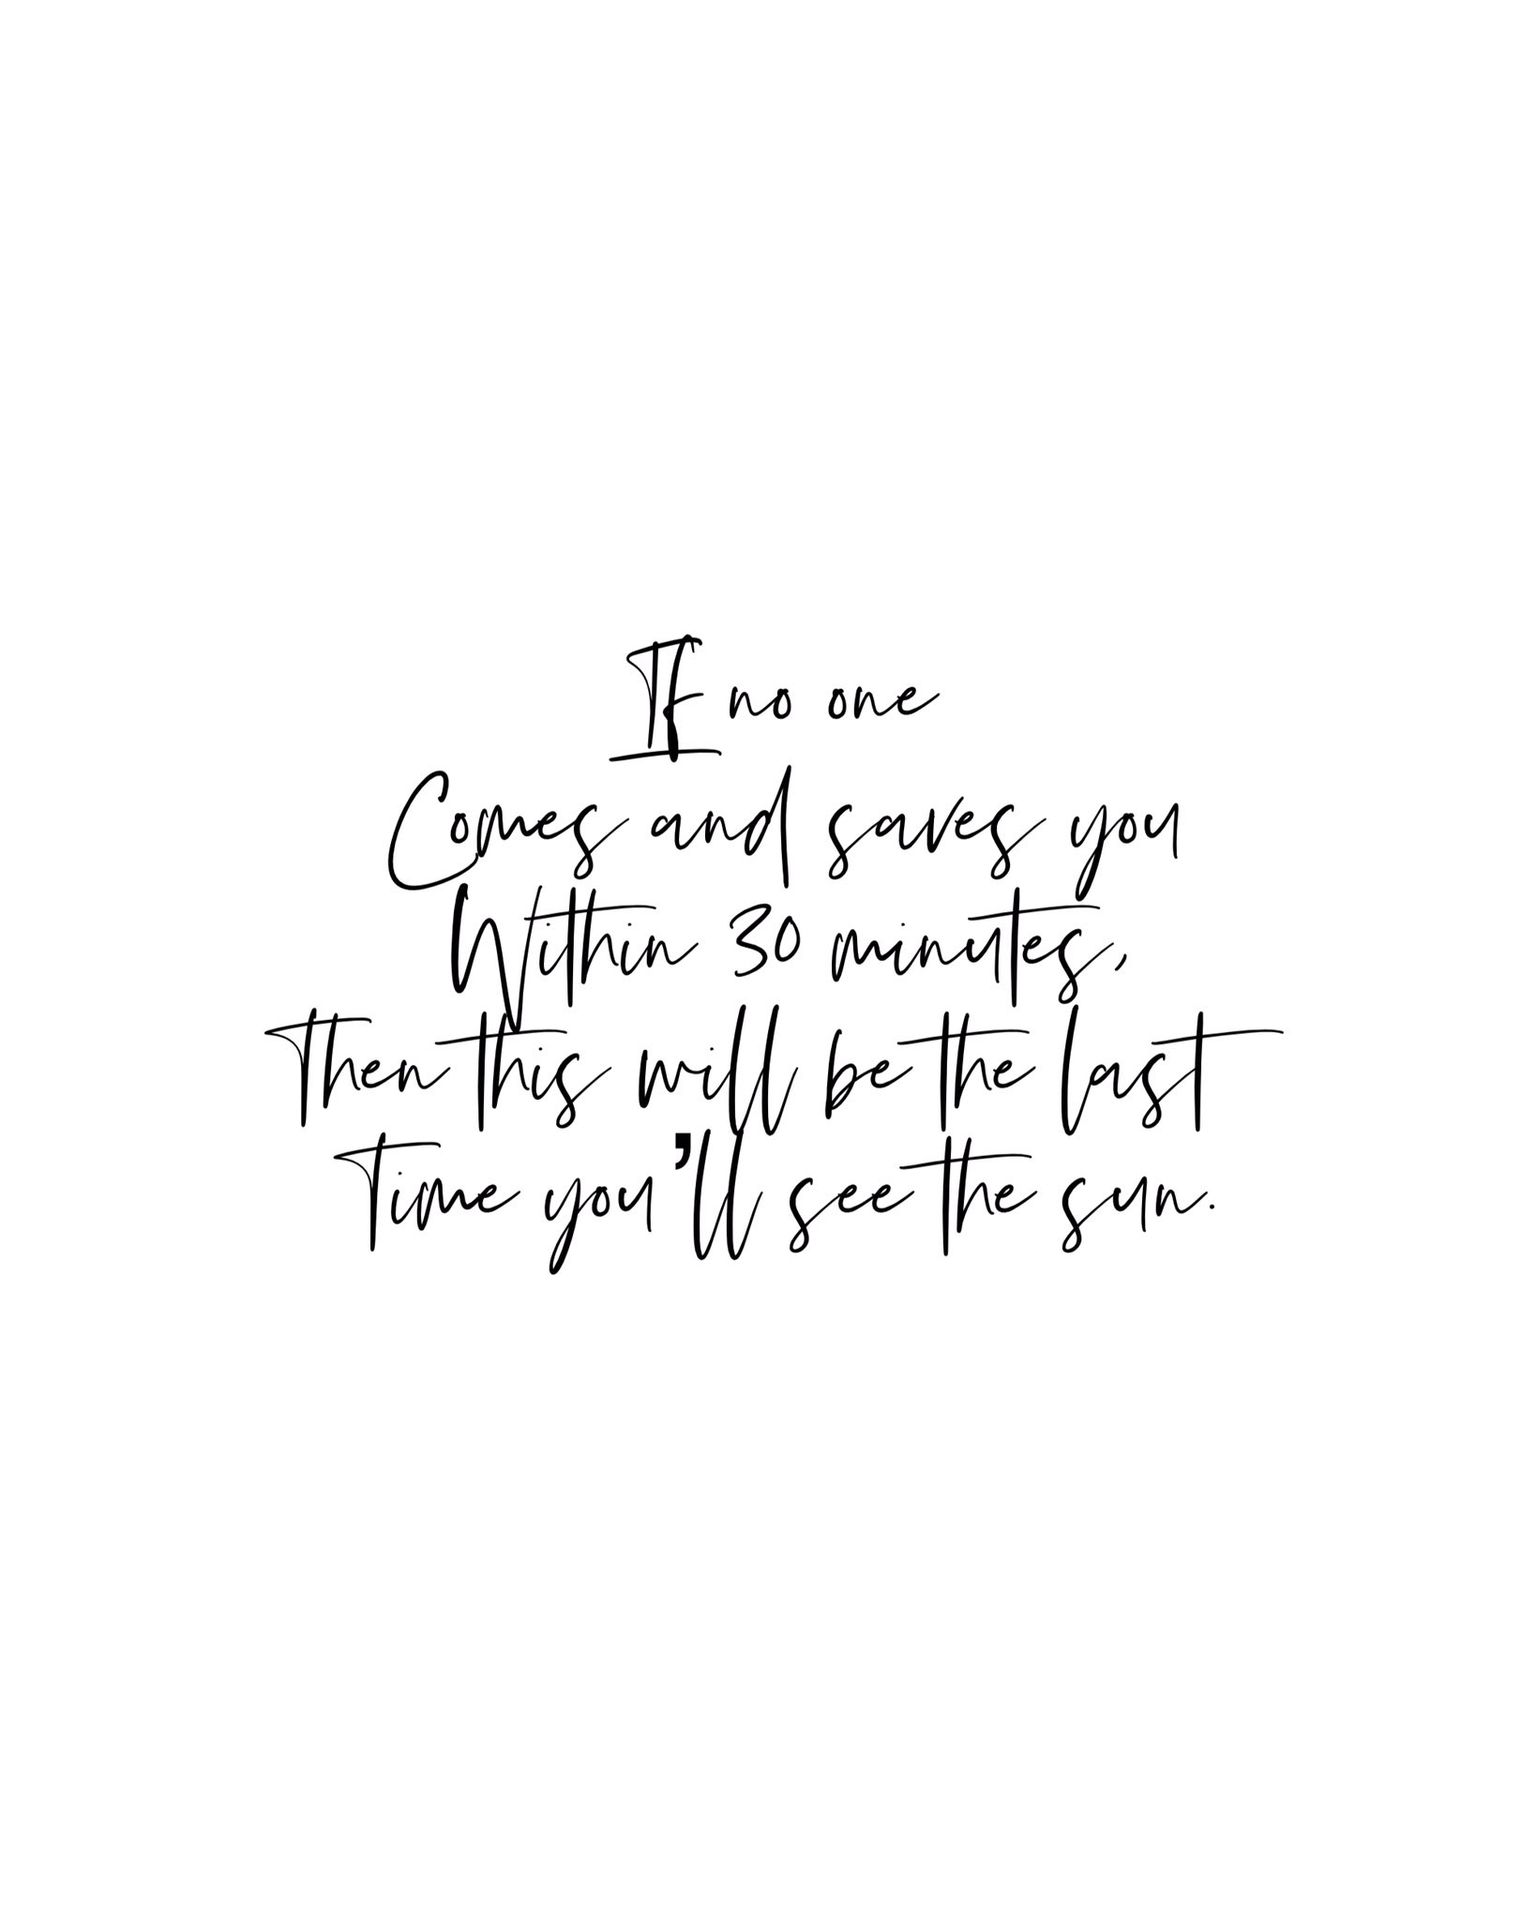 If no one
Comes and saves you
Within 30 minutes,
Then this will be the last
Time you'll see the sun.